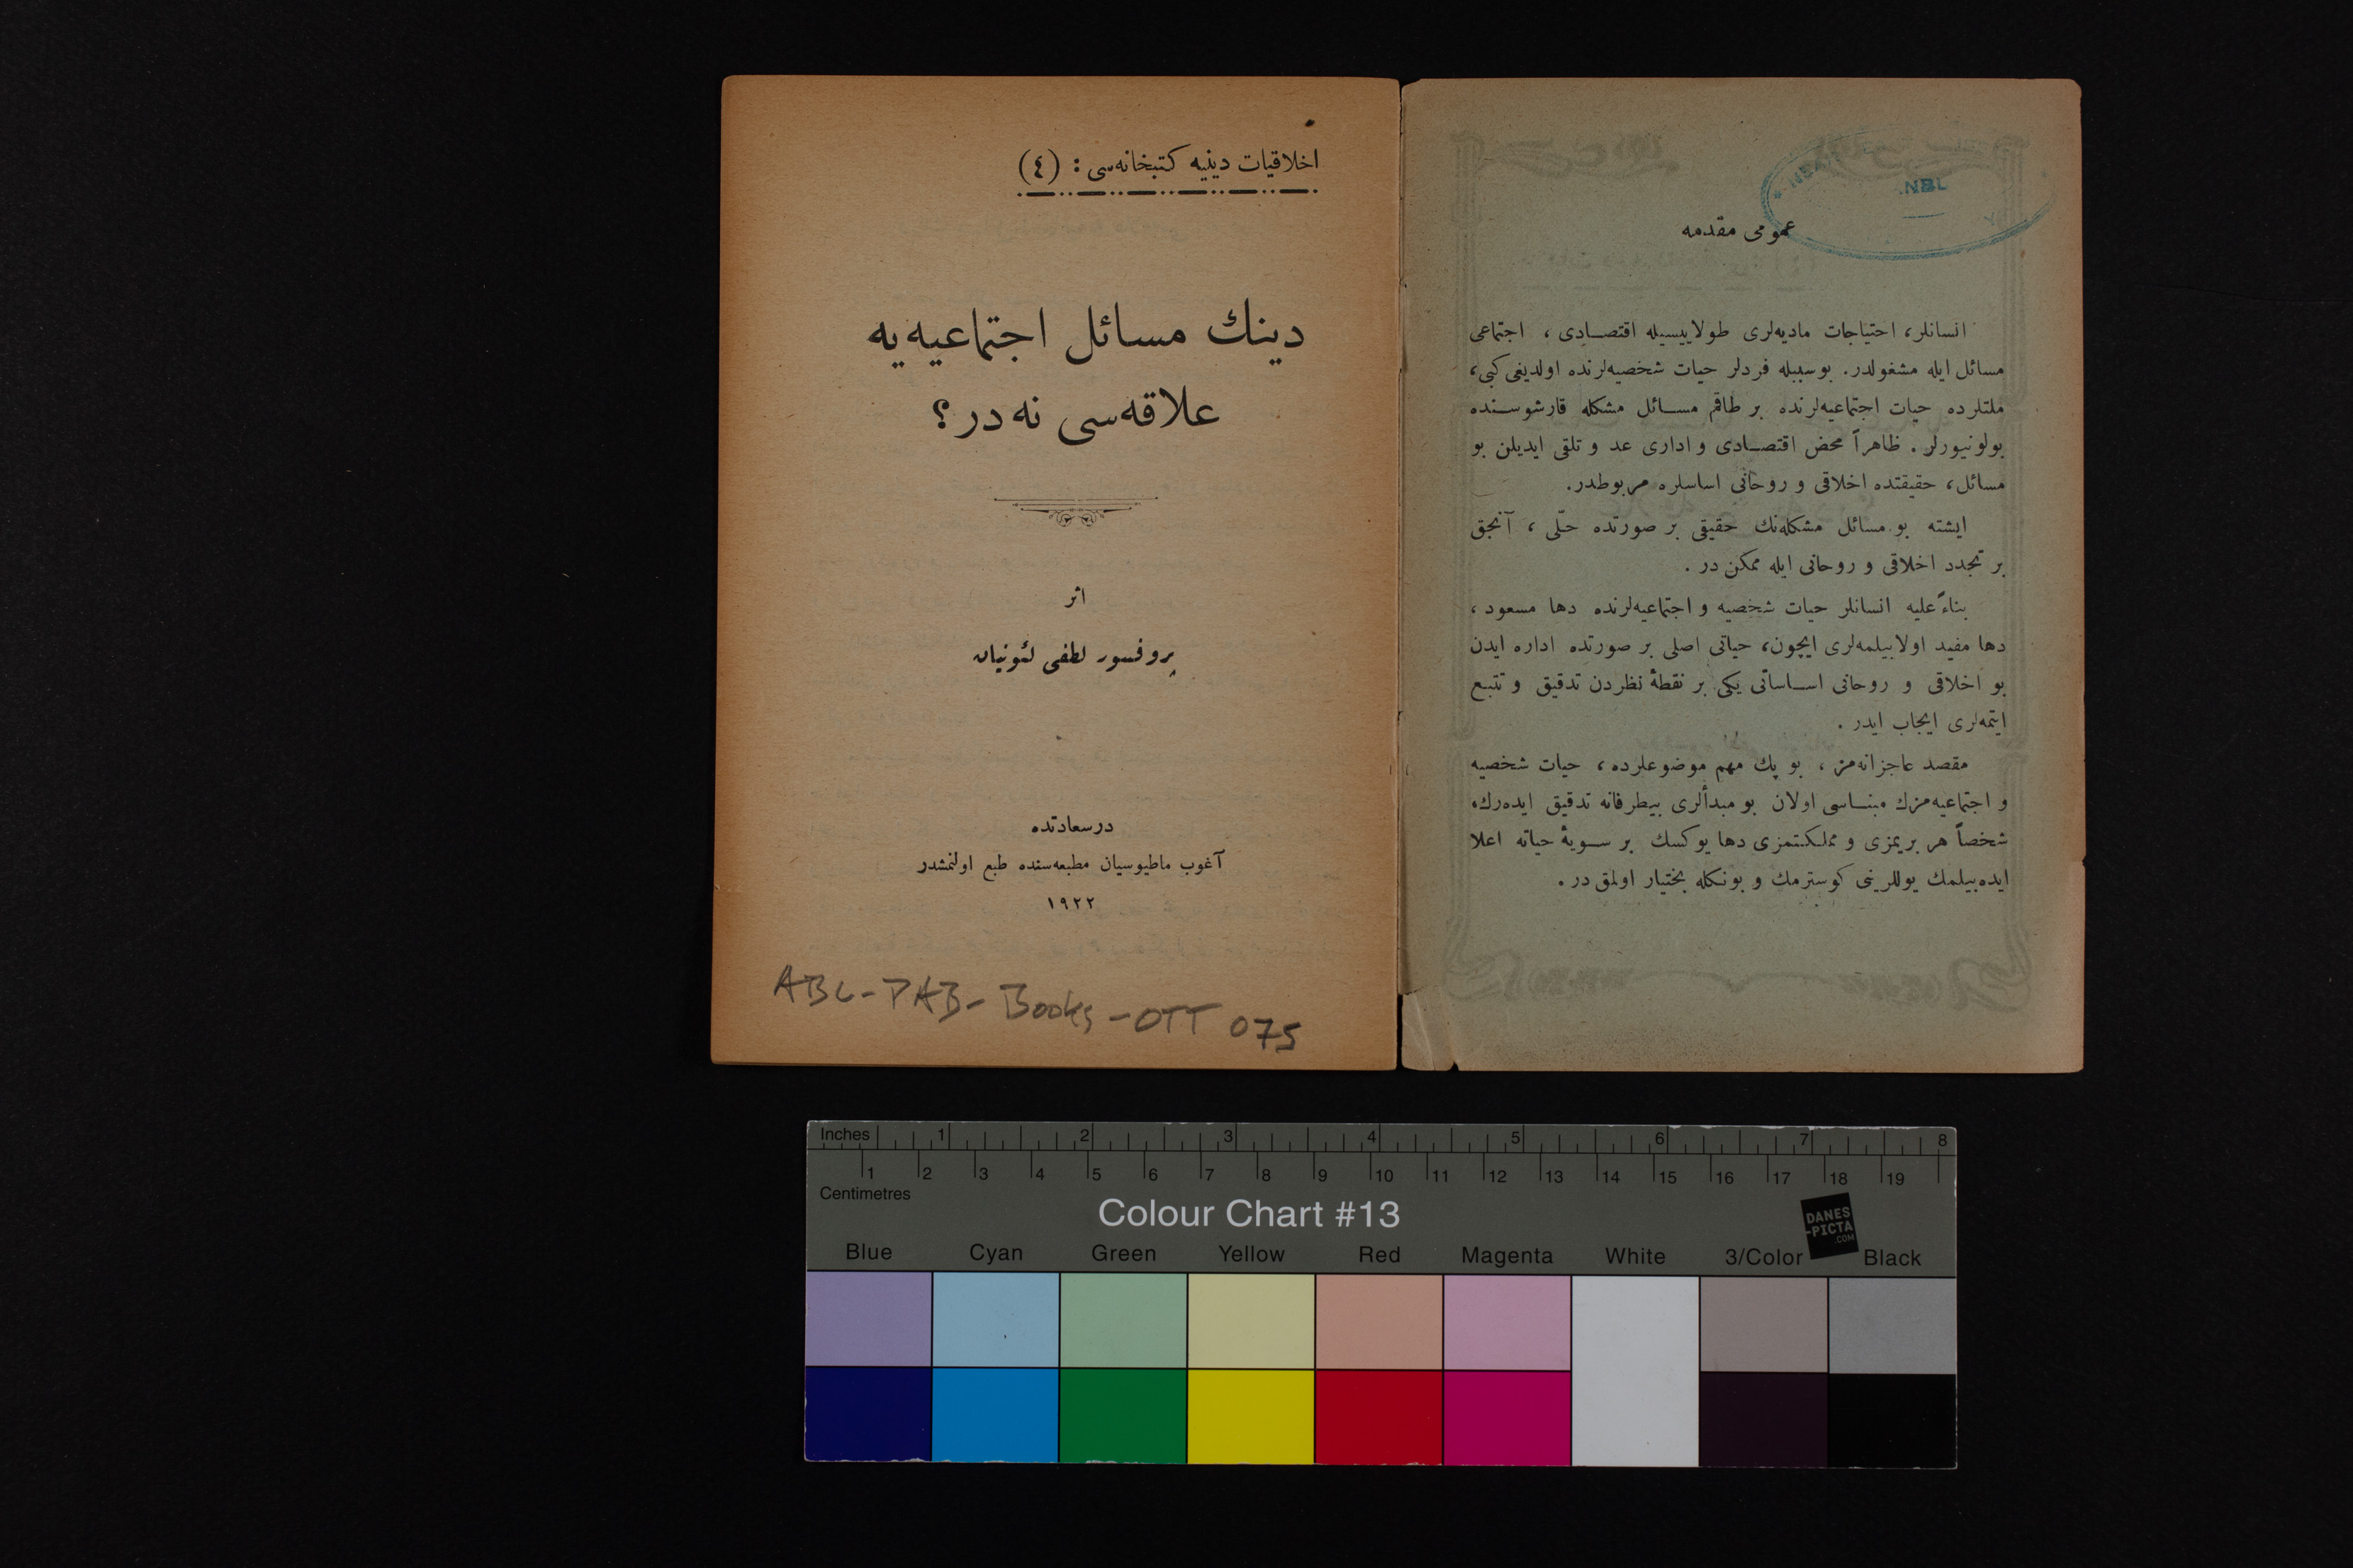 عمومی مقدمه
انسانلر، احتیاجات مادیه‌لری طولاییسیله اقتصادی ، اجتماعی
مسائل ایله مشغولدر. بوسببله فردلر حیات شخصیه‌لرنده اولدیغی کبی،
ملتلرده حیات اجتماعیه‌لرنده بر طاقم مسائل مشکله قارشوسنده
بولونیورلر . ظاهراً محض اقتصادی و اداری عد و تلقی ایدیلن بو
مسائل، حقیقتده اخلاقی و روحانی اساسلره مربوطدر.
ایشته بو مسائل مشکله‌نك حقیقی بر صورتده حلّی ، آنجق
بر تجدد اخلاقی و روحانی ایله ممکن در .
بناءً علیه انسانلر حیات شخصیه و اجتماعیه‌لرنده دها مسعود ،
دها مفید اولابیلمه‌لری ایچون، حیاتی اصلی بر صورتده اداره ایدن
بو اخلاقی و روحانی اساساتی یکی بر نقطهٔ نظردن تدقیق و تتبع
ایتمه‌لری ایجاب ایدر .
مقصد عاجزانه‌مز ، بو پك مهم موضوعلرده ، حیات شخصیه
و اجتماعیه‌مزك مبناسی اولان بو مبدألری بیطرفانه تدقیق ایده‌رك،
شخصاً هر بریمزی و مملکتمزی دها یوکسك بر سویهٔ حیاته اعلا
ایده‌بیلمك یوللرینی کوسترمك و بونکله بختیار اولمق در .
NBL
اخلاقیات دینیه کتبخانه‌سی : (٤)
دینك مسائل اجتماعیه‌یه
علاقه‌سی نه‌در؟
اثر
پروفسور لطفی لئونیان
درسعادتده
آغوب ماطیوسیان مطبعه‌سنده طبع اولنمشدر
١٩٢٢
ABC-PAB-Books-OTT 075
Inches 1 2 3 4 5 6 7 8
1 2 3 4 5 6 7 8 9 10 11 12 13 14 15 16 17 18 19
Centimetres
Colour Chart #13
DANES
-PICTA
.COM
Blue Cyan Green Yellow Red Magenta White 3/Color Black